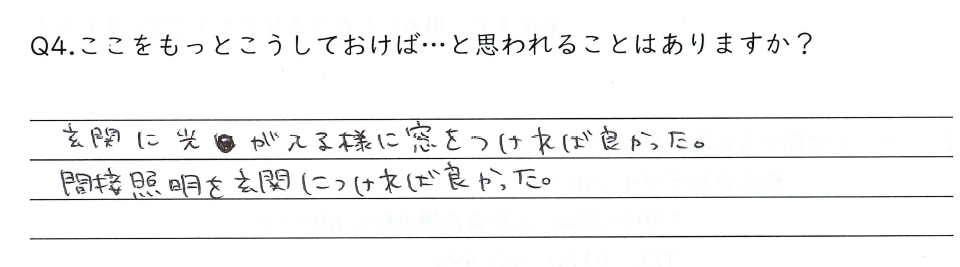 Q4.ここをもっとこうしておけば…と思われることはありますか？
玄関に光が入る様に窓をつければ良かった。
間接照明を玄関につければ良かった。